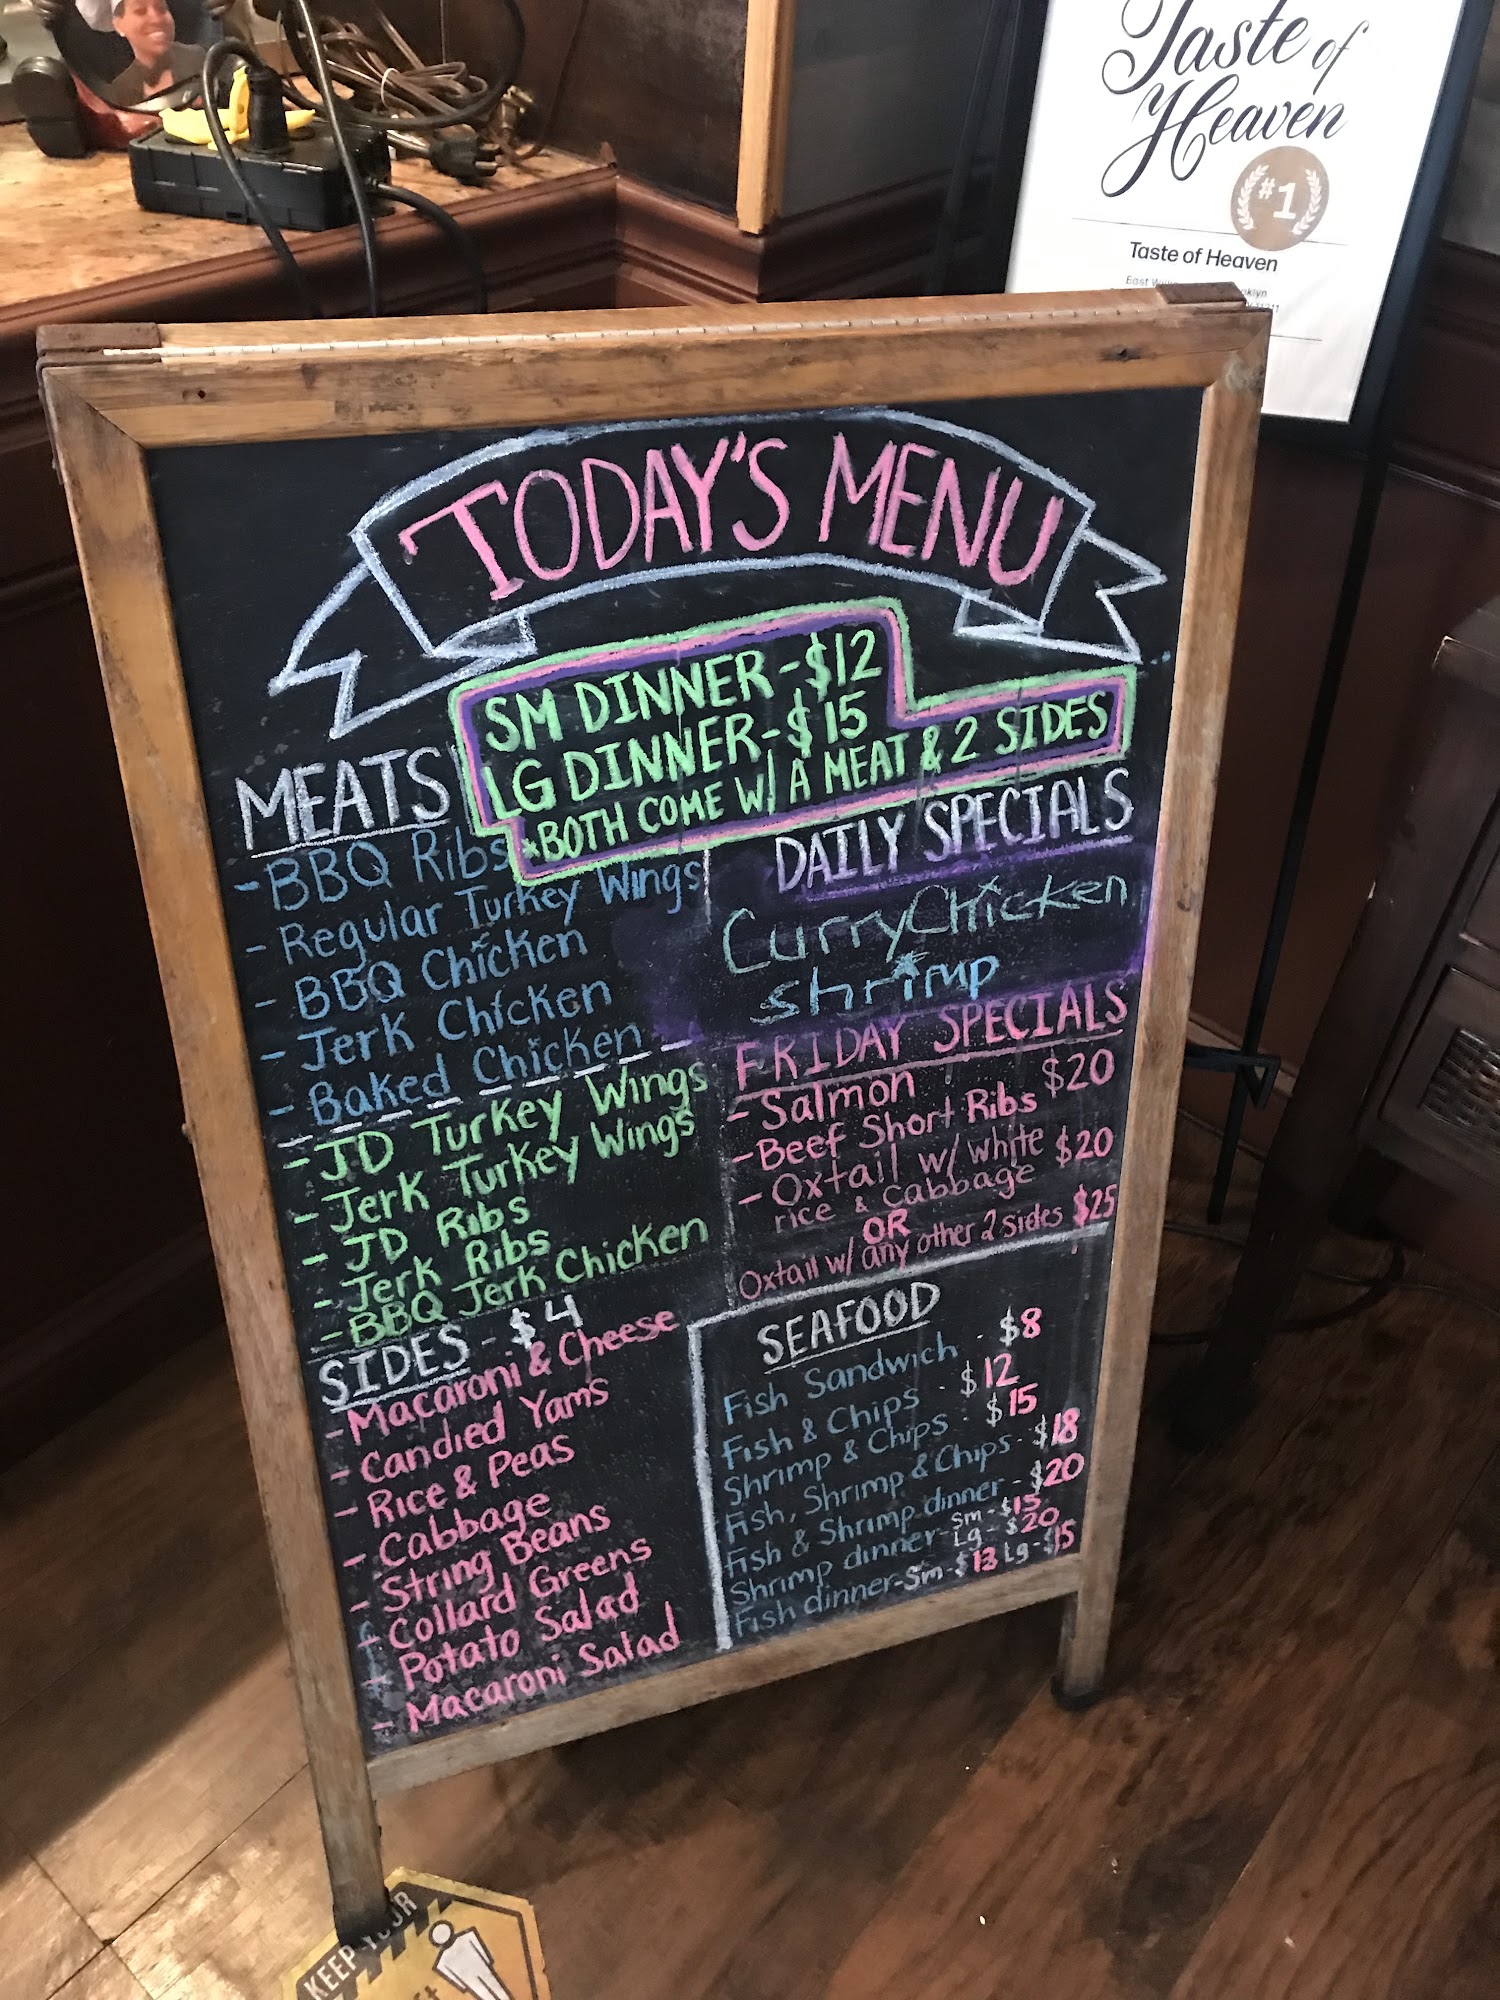 Taste of
Heaven
#1
Taste of Heaven
East
TODAY'S MENU
SM DINNER - $12
LG DINNER - $15
*BOTH COME W/ A MEAT & 2 SIDES
MEATS
- BBQ Ribs
- Regular Turkey Wings
- BBQ Chicken
- Jerk Chicken
- Baked Chicken
- JD Turkey Wings
- Jerk Turkey Wings
- JD Ribs
- Jerk Ribs
- BBQ Jerk Chicken
SIDES - $4
- Macaroni & Cheese
- Candied Yams
- Rice & Peas
- Cabbage
- String Beans
- Collard Greens
- Potato Salad
- Macaroni Salad
DAILY SPECIALS
Curry Chicken
shrimp
FRIDAY SPECIALS
- Salmon $20
- Beef Short Ribs
- Oxtail w/ white $20
rice & Cabbage
OR
Oxtail w/ any other 2 sides $25
SEAFOOD
Fish Sandwich - $8
Fish & Chips - $12
Shrimp & Chips - $15
Fish, Shrimp & Chips - $18
Fish & Shrimp dinner - $20
Shrimp dinner - Sm - $15
Lg - $20
Fish dinner - Sm - $13 Lg - $15
KEEP YOUR